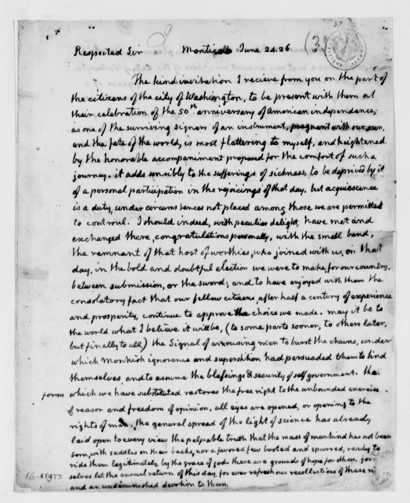 Respected Sir Monticello June 24.26
The kind invitation I recieve from you on the part of
the citizens of the city of Washington, to be present with them at
their celebration of the 50th anniversary of American independance;
as one of the surviving signers of an instrument, pregnant with our own,
and the fate of the world, is most flattering to myself, and heightened
by the honorable accompaniment proposed for the comfort of such a
journey. it adds sensibly to the sufferings of sickness, to be deprived by it
of a personal participation in the rejoicings of that day. but acquiescence
is a duty, under circumstances not placed among those we are permitted
to controul. I should indeed, with peculiar delight, have met and
exchanged there, congratulations personally, with the small band,
the remnant of that host of worthies, who joined with us, on that
day, in the bold and doubtful election we were to make, for our country,
between submission, or the sword; and to have enjoyed with them the
consolatory fact that our fellow citizens, after half a century of experience
and prosperity, continue to approve the choice we made. may it be to
the world what I believe it will be, (to some parts sooner, to others later,
but finally to all,) the Signal of arousing men to burst the chains, under
which Monkish ignorance and superstition had persuaded them to bind
themselves, and to assume the blessings & security of self government. the
form which we have substituted restores the free right to the unbounded exercise
of reason and freedom of opinion. all eyes are opened, or opening to the
rights of man. the general spread of the light of science has already
laid open to every view the palpable truth that the mass of mankind has not been
born, with saddles on their backs, nor a favored few booted and spurred, ready to
ride them legitimately, by the grace of god. these are grounds of hope for others. for
selves let the annual return of this day, for ever refresh our recollections of these ri
and an undiminished devotion to them.